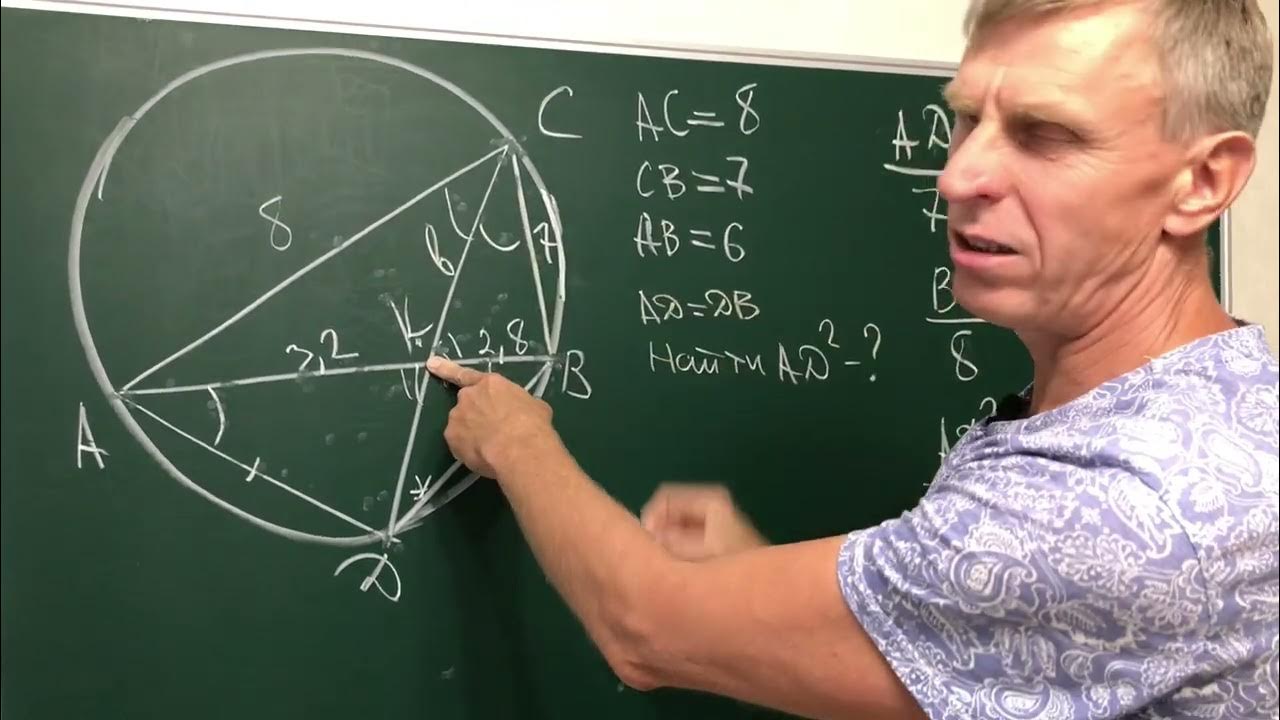 C
8
6
7
K
3,2
2,8
B
A
D
AC=8
CB=7
AB=6
AD=DB
Найти AD²-?
AD
7
B
8